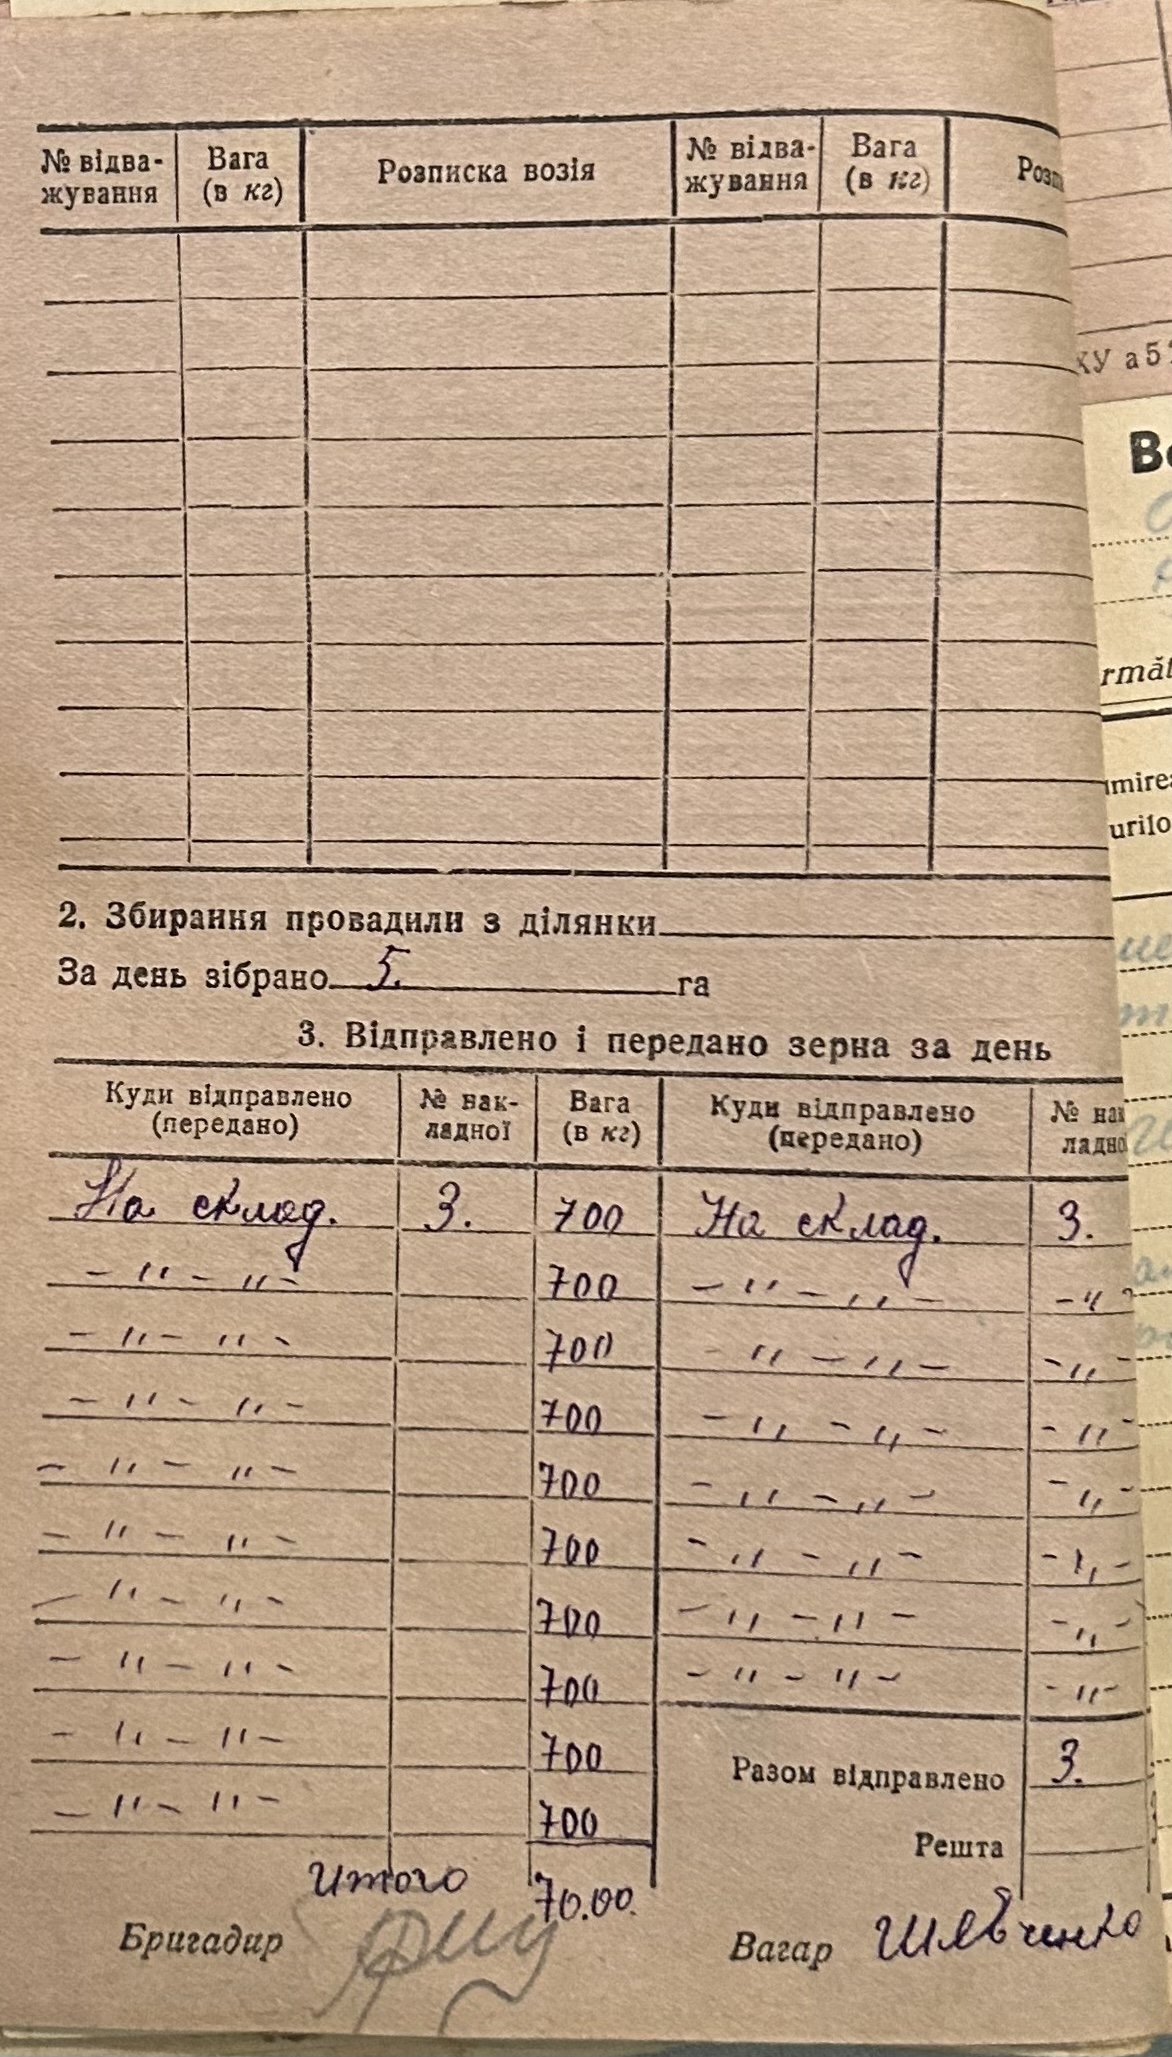 № відва-жування Вага (в кг) Розписка возія № відва-жування Вага (в кг)
2. Збирання провадили з ділянки
За день зібрано 5. га
3. Відправлено і передано зерна за день
Куди відправлено (передано) № нак-ладної Вага (в кг) Куди відправлено (передано) № нак ладно
На склад. 3. 700 На склад. 3.
– " – " – 700 – " – " – – "
– " – " – 700 – " – " – – " –
– " – " – 700 – " – " – – " –
– " – " – 700 – " – " – – " –
– " – " – 700 – " – " – – " –
– " – " – 700 – " – " – – " –
– " – " – 700 – " – " – – " –
– " – " – 700 Разом відправлено 3.
– " – " – 700 Решта
Итого 70.00.
Бригадир Вагар Шевченко
ХУ а5
rmăt